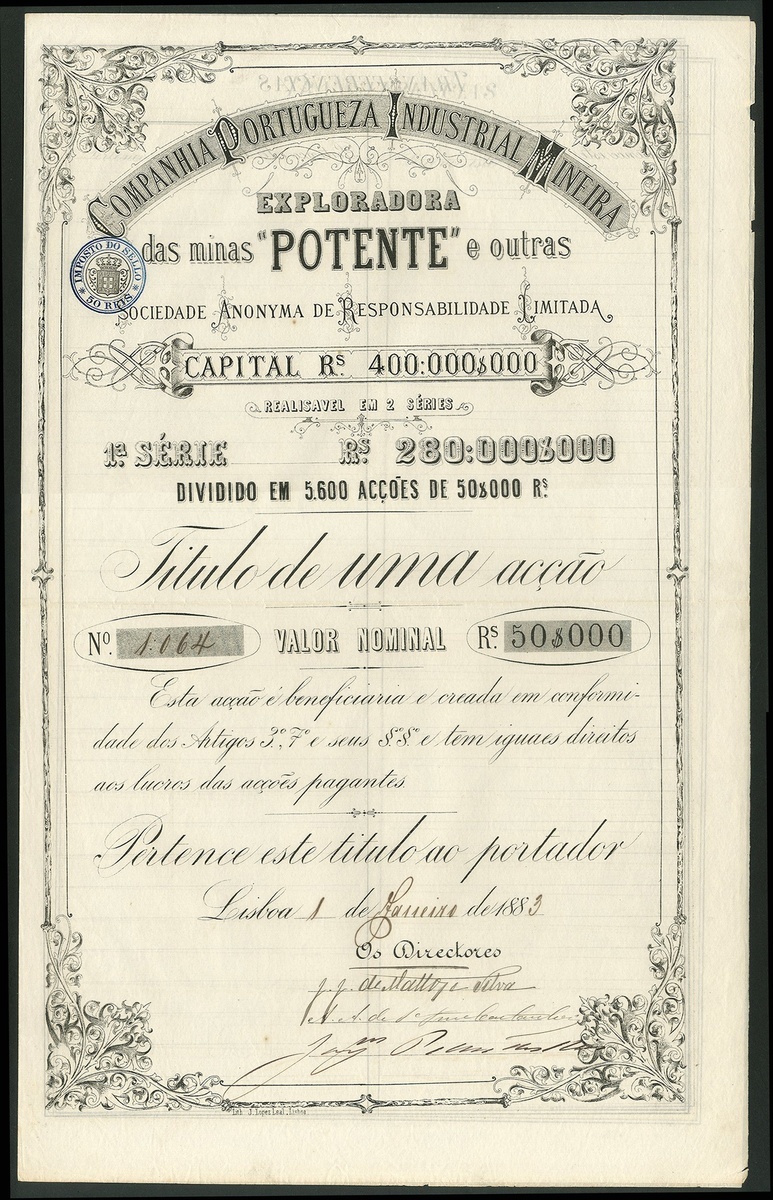 COMPANHIA PORTUGUEZA INDUSTRIAL MINEIRA
EXPLORADORA
das minas "POTENTE" e outras
IMPOSTO DO SELLO
50 REIS
SOCIEDADE ANONYMA DE RESPONSABILIDADE LIMITADA
CAPITAL Rs. 400:000$000
REALISAVEL EM 2 SÉRIES
1ª SÉRIE Rs. 280:000$000
DIVIDIDO EM 5.600 ACÇÕES DE 50$000 Rs.
Titulo de uma acção
No. 1:064 VALOR NOMINAL Rs. 50$000
Esta acção é beneficiaria e creada em conformi-
dade dos Artigos 3º, 7º e seus §.º§.º e tem iguaes direitos
aos lucros das acções pagantes.
Pertence este titulo ao portador
Lisboa 1 de Janeiro de 1883
Os Directores
J. J. de Mattos e Silva
Lith. J. Lopes Leal, Lisboa
TRANSFERENCIAS